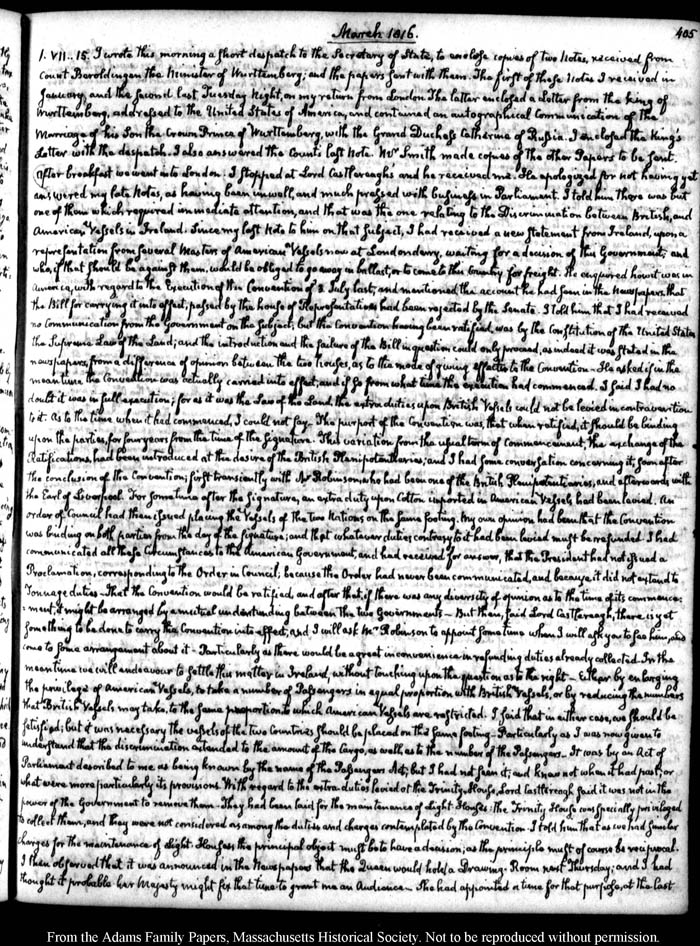 March 1816.
405
1. VII-15. I wrote this morning a short despatch to the Secretary of State, to enclose copies of two Notes, received from
Count Beroldingen the Minister of Wurttemberg; and the papers sent with them. The first of these Notes I received in
January, and the second last Tuesday Night, on my return from London. The latter enclosed a Letter from the King of
Wurttemberg, addressed to the United States of America, and contained an autographical Communication of the
Marriage of his Son the Crown Prince of Wurttemberg, with the Grand Duchess Catherine of Russia. I enclosed the King's
Letter with the despatch. I also answered the Count's last Note. Mr Smith made copies of the other Papers to be sent.
After breakfast we went into London. I stopped at Lord Castlereagh's and he received me. He apologized for not having yet
answered my late Notes, as having been unwell, and much pressed with business in Parliament. I told him there was but
one of them which required immediate attention, and that was the one relating to the Discrimination between British, and
American Vessels in Ireland. Since my last Note to him on that Subject, I had received a new Statement from Ireland, upon a
representation from several Masters of American Vessels now at Londonderry, waiting for a decision of this Government; and
who, if that should be against them, would be obliged to go away in ballast, or to come to this Country for freight. He enquired how it was in
America, with regard to the Execution of the Convention of 3 July last; and mentioned the account he had seen in the Newspapers that
the Bill for carrying it into effect, passed by the house of Representatives had been rejected by the Senate. I told him that I had received
no Communication from the Government on the Subject; but the Convention having been ratified, was by the Constitution of the United States
the Supreme Law of the Land; and the introduction and the failure of the Bill in question could only proceed, as indeed it was stated in the
newspapers, from a difference of opinion between the two houses, as to the mode of giving effect to the Convention. He asked if in the
mean time the Convention was actually carried into effect; and if so from what time the execution had commenced. I said I had no
doubt it was in full execution; for as it was the Law of the Land, the extra duties upon British Vessels could not be levied in contravention
to it. As to the time when it had commenced, I could not say. The purport of the Convention was, that when ratified, it should be binding
upon the parties, for four years from the time of the Signature. This variation from the usual term of commencement, the exchange of the
Ratifications, had been introduced at the desire of the British Plenipotentiaries; and I had some conversation concerning it, soon after
the conclusion of the Convention; first transiently with Mr Robinson, who had been one of the British Plenipotentiaries, and afterwards with
the Earl of Liverpool. For some time after the Signature, an extra duty upon Cotton imported in American Vessels had been levied. An
order of Council had then issued placing the Vessels of the two Nations on the same footing. My own opinion had been that the Convention
was binding on both parties from the day of the signature; and that whatever duties contrary to it had been levied must be refunded. I had
communicated all these Circumstances to the American Government, and had received for answer, that the President had not issued a
Proclamation, corresponding to the Order in Council, because the Order had never been communicated, and because it did not extend to
Tonnage duties. That the Convention would be ratified, and after that, if there was any diversity of opinion as to the time of its commence-
ment, it might be arranged by a mutual understanding between the two Governments— But then, said Lord Castlereagh, there is yet
something to be done to carry the Convention into effect, and I will ask Mr Robinson to appoint some time when I will ask you to see him, and
come to some arrangement about it— Particularly as there would be a great inconvenience in refunding duties already collected. In the
mean time we will endeavour to settle this matter in Ireland, without touching upon the question as to the right— Either by enlarging
the privilege of American Vessels, to take a number of Passengers in equal proportion with British Vessels, or by reducing the numbers
that British Vessels may take, to the same proportion to which American Vessels are restricted. I said that in either case, we should be
satisfied; but it was necessary the vessels of the two Countries should be placed on the same footing— Particularly as I was now given to
understand that the discrimination extended to the amount of the Cargo, as well as to the number of the Passengers— It was by an Act of
Parliament described to me as being known by the name of the Passengers Act; but I had not seen it; and knew not when it had past; or
what were more particularly its provisions. With regard to the extra duties levied at the Trinity House, Lord Castlereagh said it was not in the
power of the Government to remove them. They had been laid for the maintenance of Light Houses: the Trinity House was specially privileged
to collect them, and they were not considered as among the duties and charges contemplated by the Convention. I told him that as we had similar
charges for the maintenance of Light Houses the principal object must be to have a decision; as the principle must of course be reciprocal.
I then observed that it was announced in the Newspapers that the Queen would hold a Drawing-Room next Thursday; and I had
thought it probable her Majesty might fix that time to grant me an Audience— She had appointed a time for that purpose, at the last
From the Adams Family Papers, Massachusetts Historical Society. Not to be reproduced without permission.